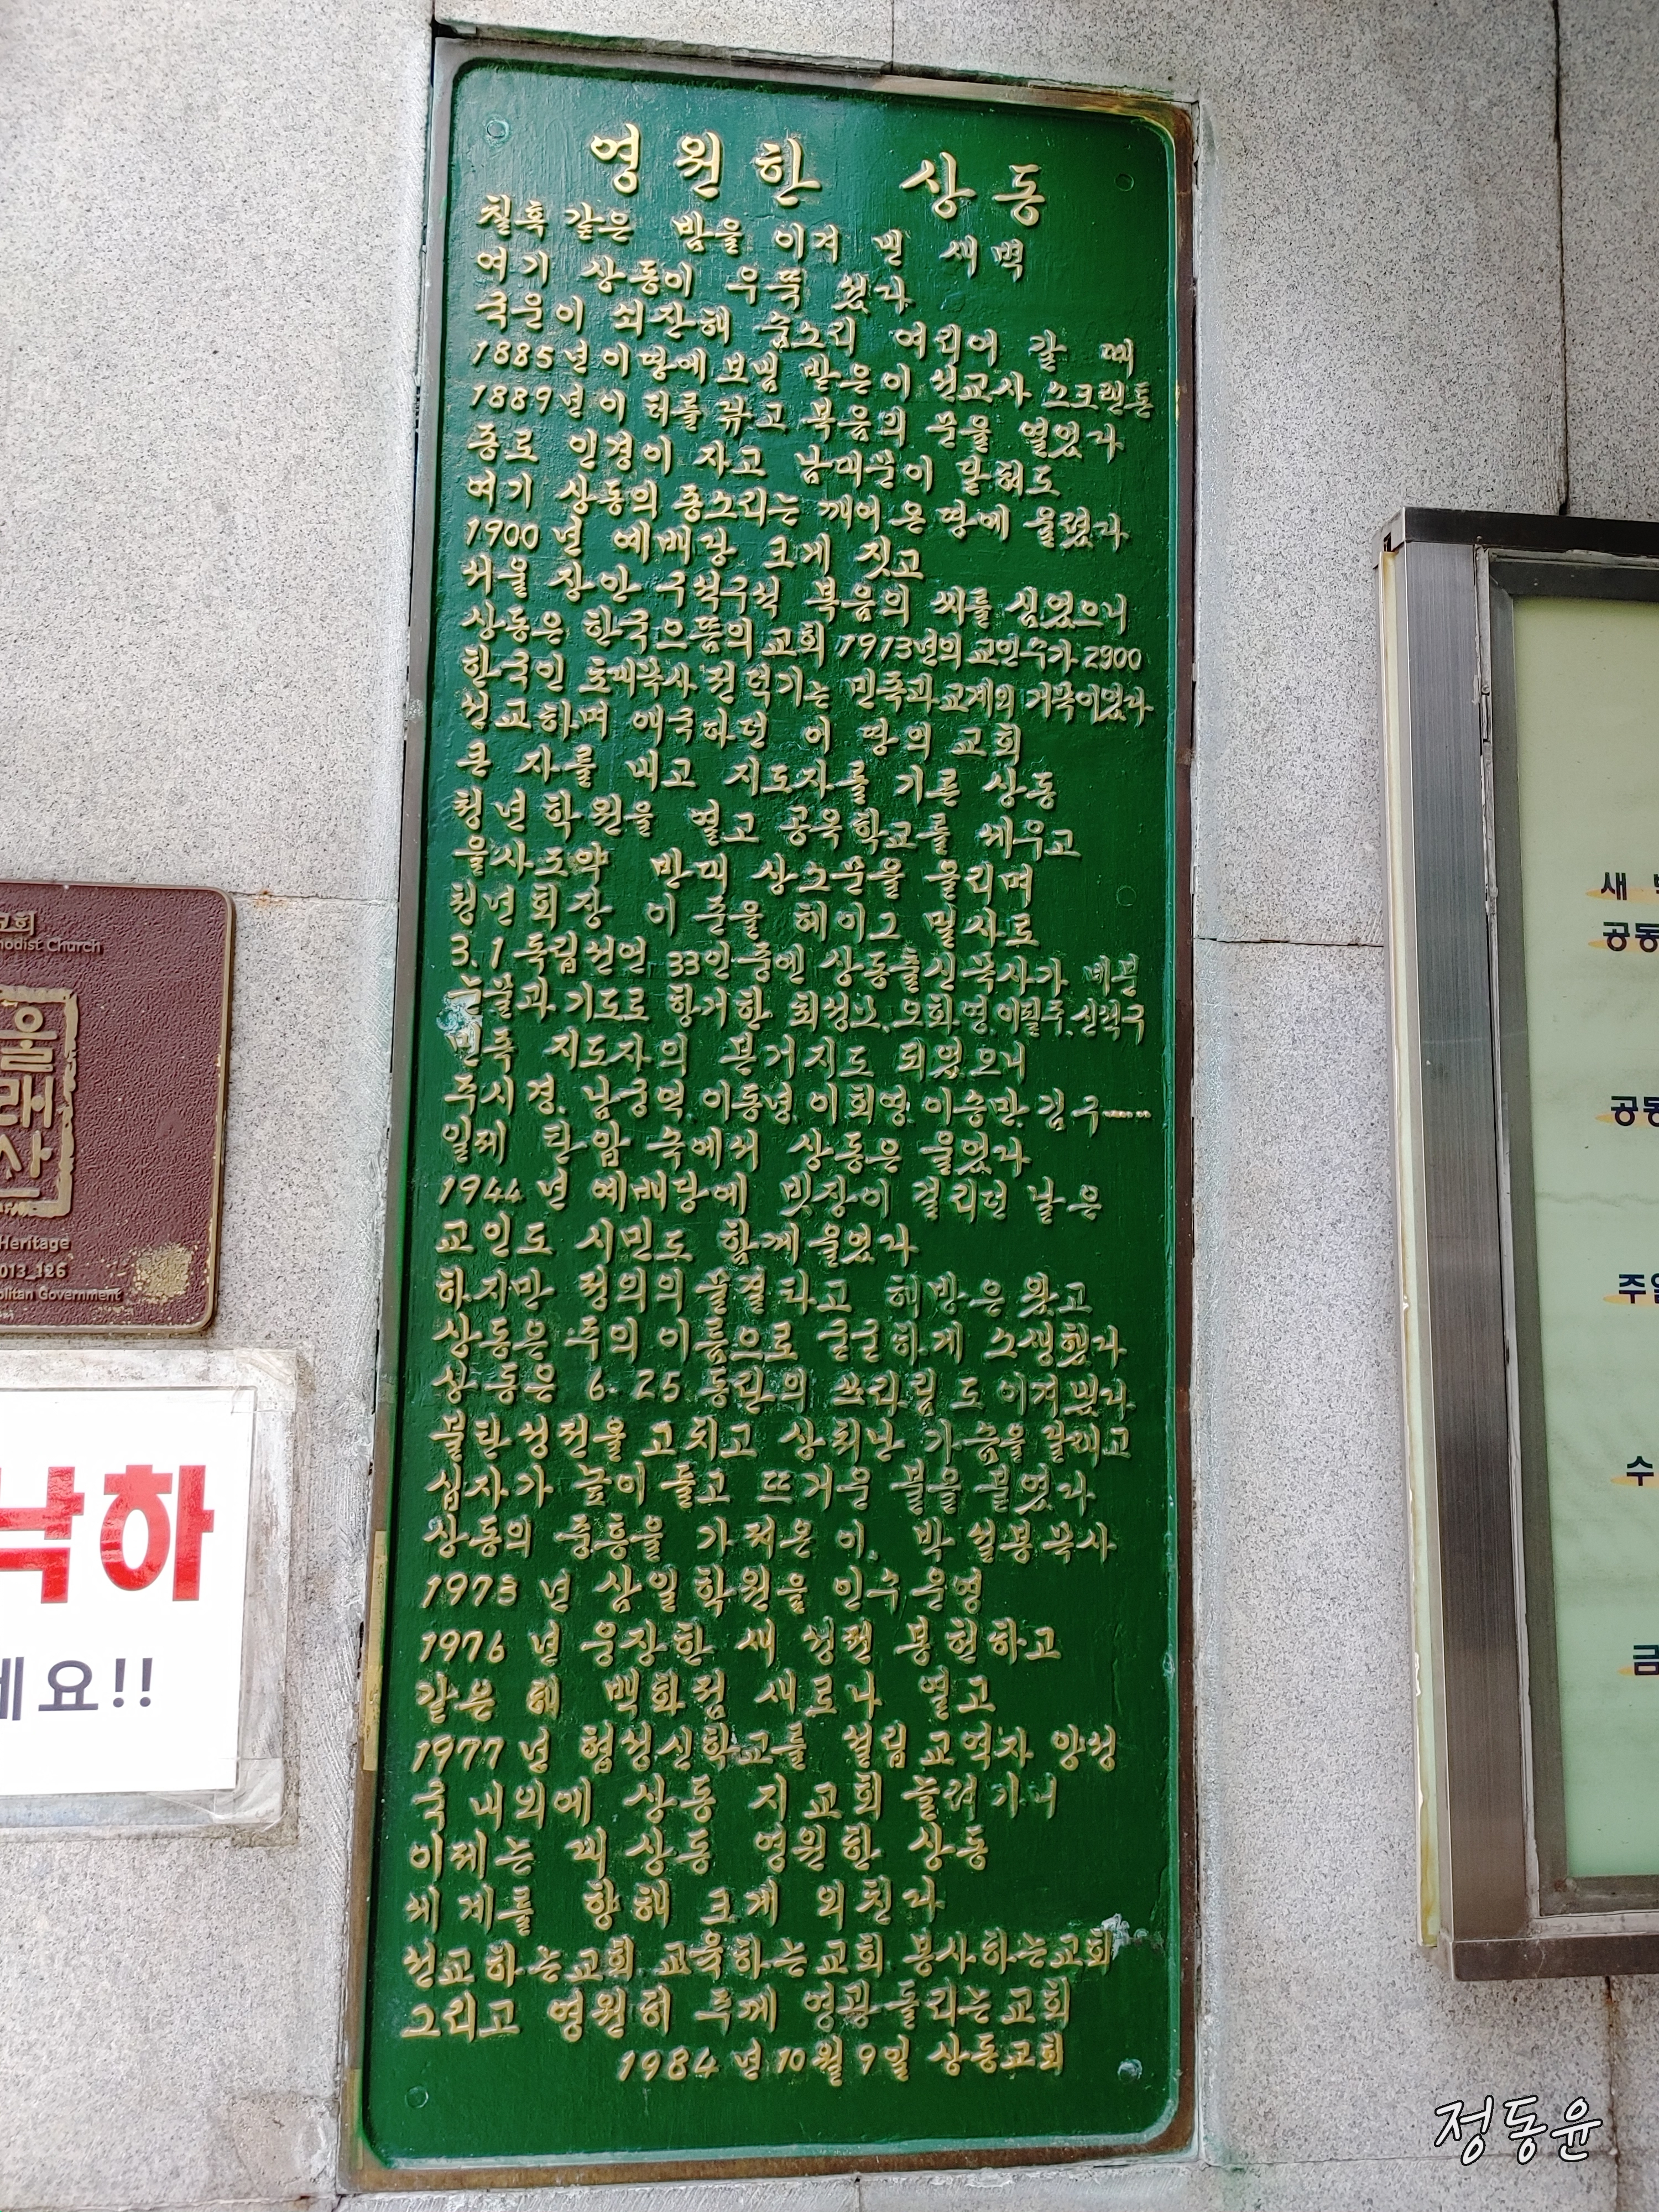 영원한 상동
칠흑 같은 밤을 이겨 낸 새벽
여기 상동이 우뚝 섰다
국운이 쇠잔해 숨소리 여리어 갈 때
1885년 이 땅에 보냄 받은 이 선교사 스크랜톤
1889년 이 터를 닦고 복음의 문을 열었다
종로 인경이 자고 남대문이 닫혀도
여기 상동의 종소리는 깨어 온 땅에 울렸다
1900년 예배당 크게 짓고
서울 장안 구석구석 복음의 씨를 심었으니
상동은 한국으뜸의 교회 1913년의 교인수가 2900
한국인 초대목사 전덕기는 민족과 교계의 거목이었다
선교하며 애국하던 이 땅의 교회
큰 자를 내고 지도자를 기른 상동
청년학원을 열고 공옥학교를 세우고
을사조약 반대 상소문을 올리며
청년회장 이 준을 헤이그 밀사로
3.1 독립선언 33인중엔 상동출신 목사가 네분
눈물과 기도로 항거한 최성모.오화영.이필주.신석구
민족 지도자의 본거지도 되었으니
주시경.남궁억.이동녕.이회영.이승만.김구
일제 탄압 속에서 상동은 울었다
1944년 예배당에 빗장이 걸리던 날은
교인도 시민도 함께 울었다
하지만 정의의 물결 타고 해방은 왔고
상동은 주의 이름으로 굳굳하게 소생했다
상동은 6.25 동란의 쓰라림도 이겨냈다
불탄 성전을 고치고 상처난 가슴을 달래고
십자가 높이 들고 뜨거운 불을 붙였다
상동의 중흥을 가져온 이. 박설봉목사
1973년 삼일학원을 인수 운영
1976년 웅장한 새 성전 봉헌하고
같은 해 백화점 새로나 열고
1977년 협성신학교를 설립 교역자 양성
국내외에 상동 지교회 늘려가니
이제는 새 상동 영원한 상동
세계를 향해 크게 외친다
선교하는교회.교육하는교회.봉사하는교회
그리고 영원히 주께 영광돌리는교회
1984년 10월 9일 상동교회
교회
Methodist Church
울
래
산
Heritage
2013-126
낙하
세요!!
새 벽
공동
공동
주일
수
금
정동윤